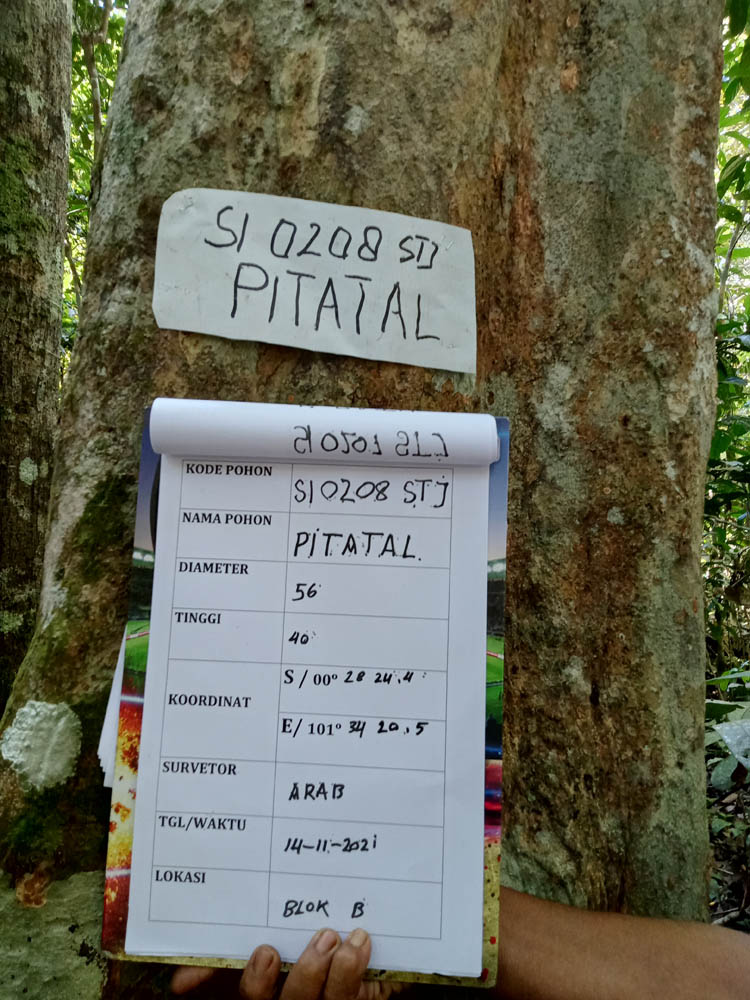 SI 0208 STJ
PITATAL
SI 0201 STJ
KODE POHON SI 0208 STJ
NAMA POHON PITATAL.
DIAMETER 56
TINGGI 40
KOORDINAT S / 00° 28 24,4
E/ 101° 34 20,5
SURVETOR ARAB
TGL/WAKTU 14-11-2021
LOKASI BLOK B